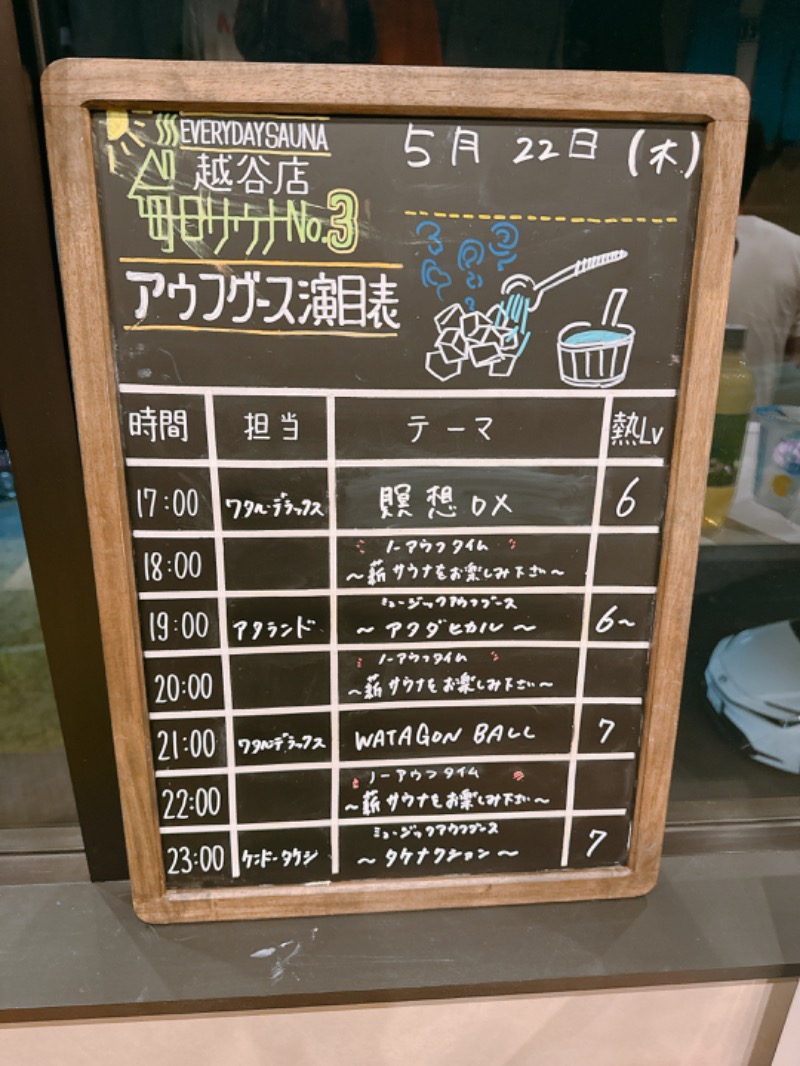 EVERYDAYSAUNA
越谷店
毎日サウナNo.3
アウフグース演目表
5月 22日 (木)
時間 担当 テーマ 熱Lv
17:00 ワタル・デラックス 瞑想DX 6
18:00 ノーアウフタイム
～薪サウナをお楽しみ下さい～
19:00 アクランド ミュージックアウフグース
～アクダヒカル～ 6～
20:00 ノーアウフタイム
～薪サウナをお楽しみ下さい～
21:00 ワタルデラックス WATAGON BALL 7
22:00 ノーアウフタイム
～薪サウナをお楽しみ下さい～
23:00 ケンドー・タケシ ミュージックアウフグース
～タケナクション～ 7